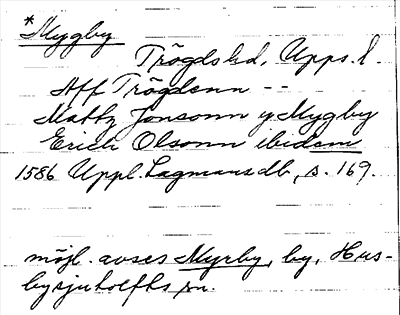 *Mygby
Trögds hd, Upps. l.
Aff Trögdenn --
Mattz Jonsonn y Mygby
Erich Olsonn ibidem
1586 Uppl. Lagmansdb, s. 169.
möjl. avses Myrby, by, Hus-
bysjutolfts sn.